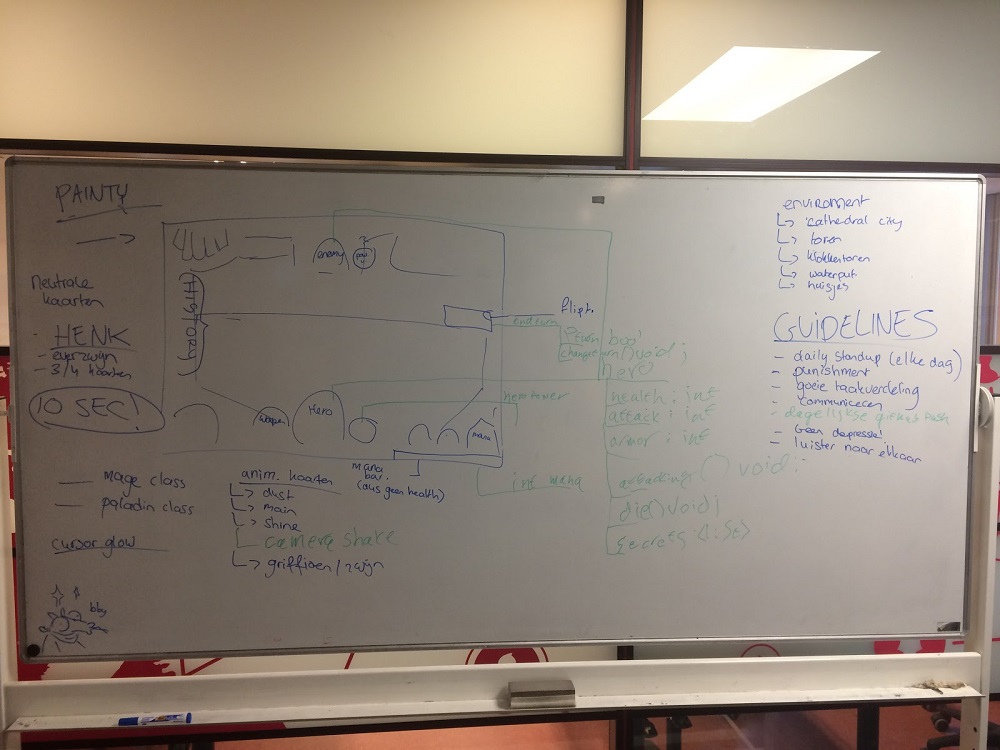 PAINTY
Neutrale
kaarten
- HENK
- everzwijn
- 3/4 kaarten
10 SEC!
mage class
paladin class
cursor glow
HISTORY
enemy
weapen
Hero
mana
mana
bar.
(dus geen health)
anim. kaarten
dust
main
shine
camera shake
griffioen / zwijn
flipt.
endturn
hero
heropower
health : int
attack : int
armor : int
int mana
attacking() void;
die() void;
secrets
environment
cathedral city
toren
klokkentoren
waterput
huisjes
GUIDELINES
- daily standup (elke dag)
- punishment
- goeie taakverdeling
- communiceren
- dagelijkse
- Geen depressie!
- luister naar elkaar